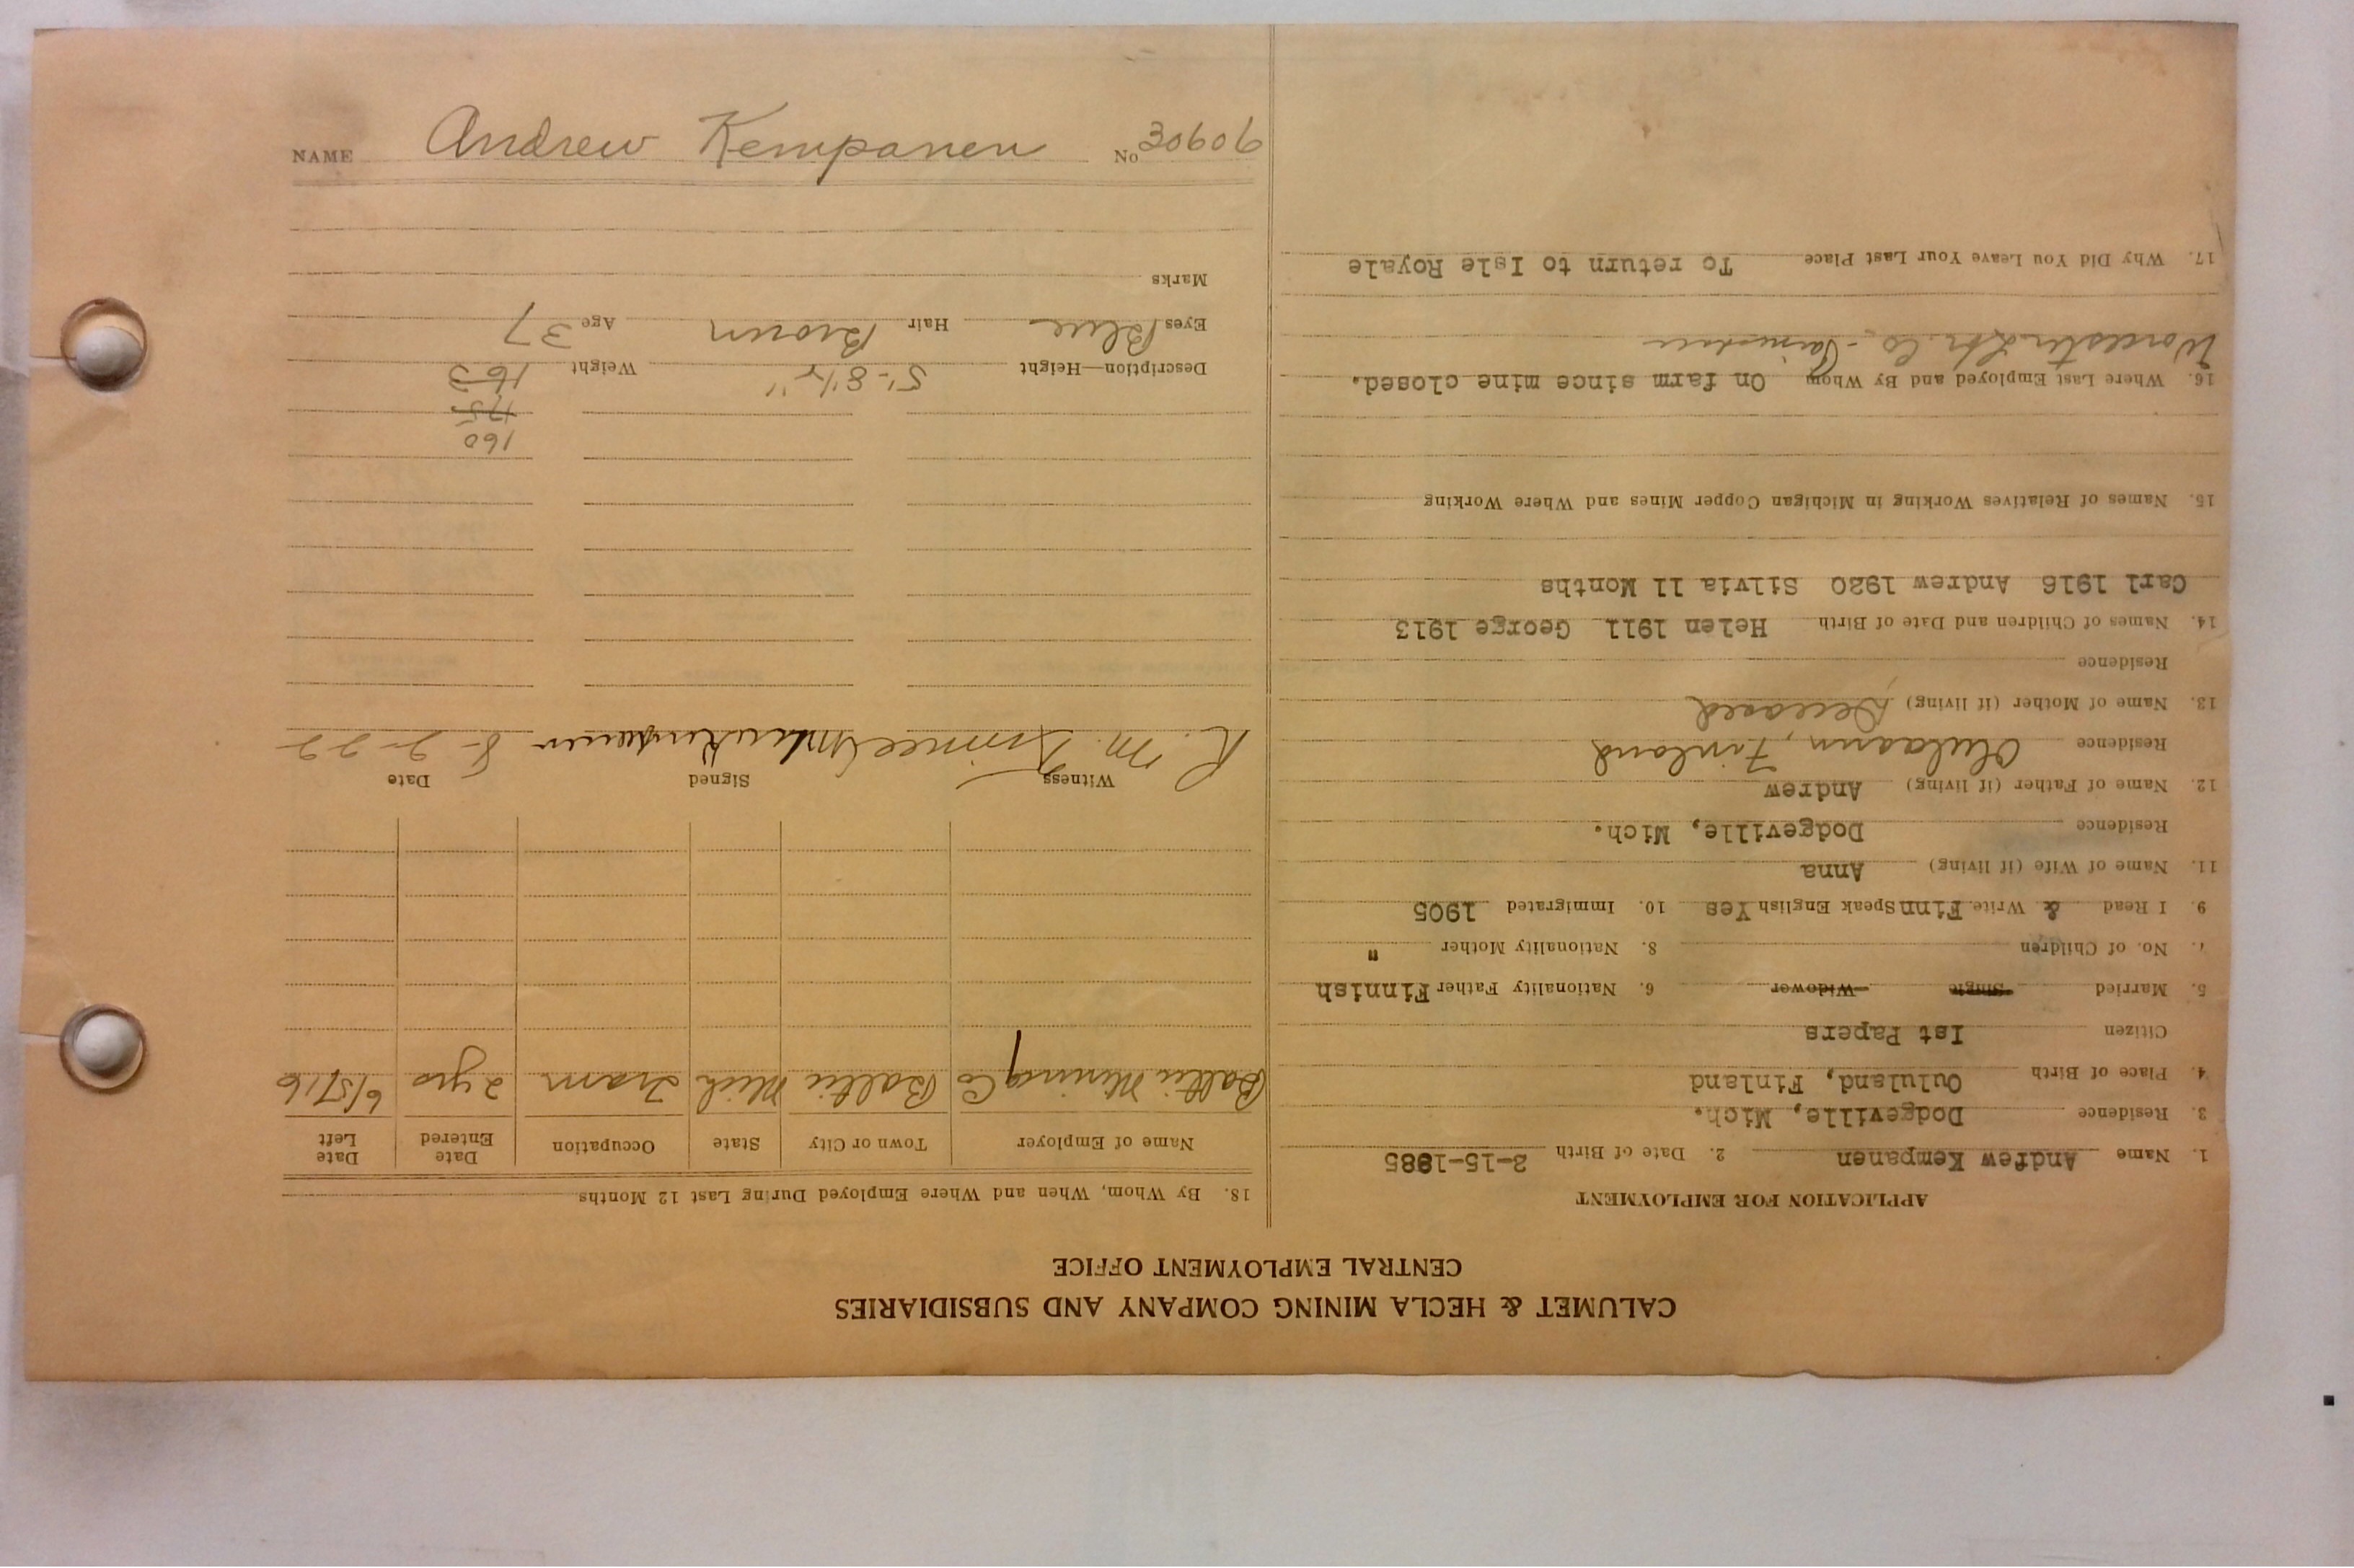 CALUMET & HECLA MINING COMPANY AND SUBSIDIARIES
CENTRAL EMPLOYMENT OFFICE
APPLICATION FOR EMPLOYMENT
1. Name Andrew Kempanen 2. Date of Birth 2-15-1885
3. Residence Dodgeville, Mich.
4. Place of Birth Oululand, Finland
Citizen Ist Papers
5. Married Single Widower 6. Nationality Father Finnish
7. No. of Children 8. Nationality Mother "
9. I Read & Write Finn Speak English Yes 10. Immigrated 1905
11. Name of Wife (if living) Anna
Residence Dodgeville, Mich.
12. Name of Father (if living) Andrew
Residence Finland
13. Name of Mother (if living) Deceased
Residence
14. Names of Children and Date of Birth Helen 1911 George 1913
Carl 1916 Andrew 1920 Silvia 11 Months
15. Names of Relatives Working in Michigan Copper Mines and Where Working
16. Where Last Employed and By Whom On farm since mine closed.
Worcester Lbr. Co.
17. Why Did You Leave Your Last Place To return to Isle Royale
18. By Whom, When and Where Employed During Last 12 Months
Name of Employer Town or City State Occupation Date Entered Date Left
Baltic Mining Co Baltic Mich Tram 2 yrs 6/5/16
Witness Signed Date
R. M. 8-2-22
160
175
Description—Height 5'-8 1/2" Weight 163
Eyes Blue Hair Brown Age 37
Marks
NAME Andrew Kempanen No 30606